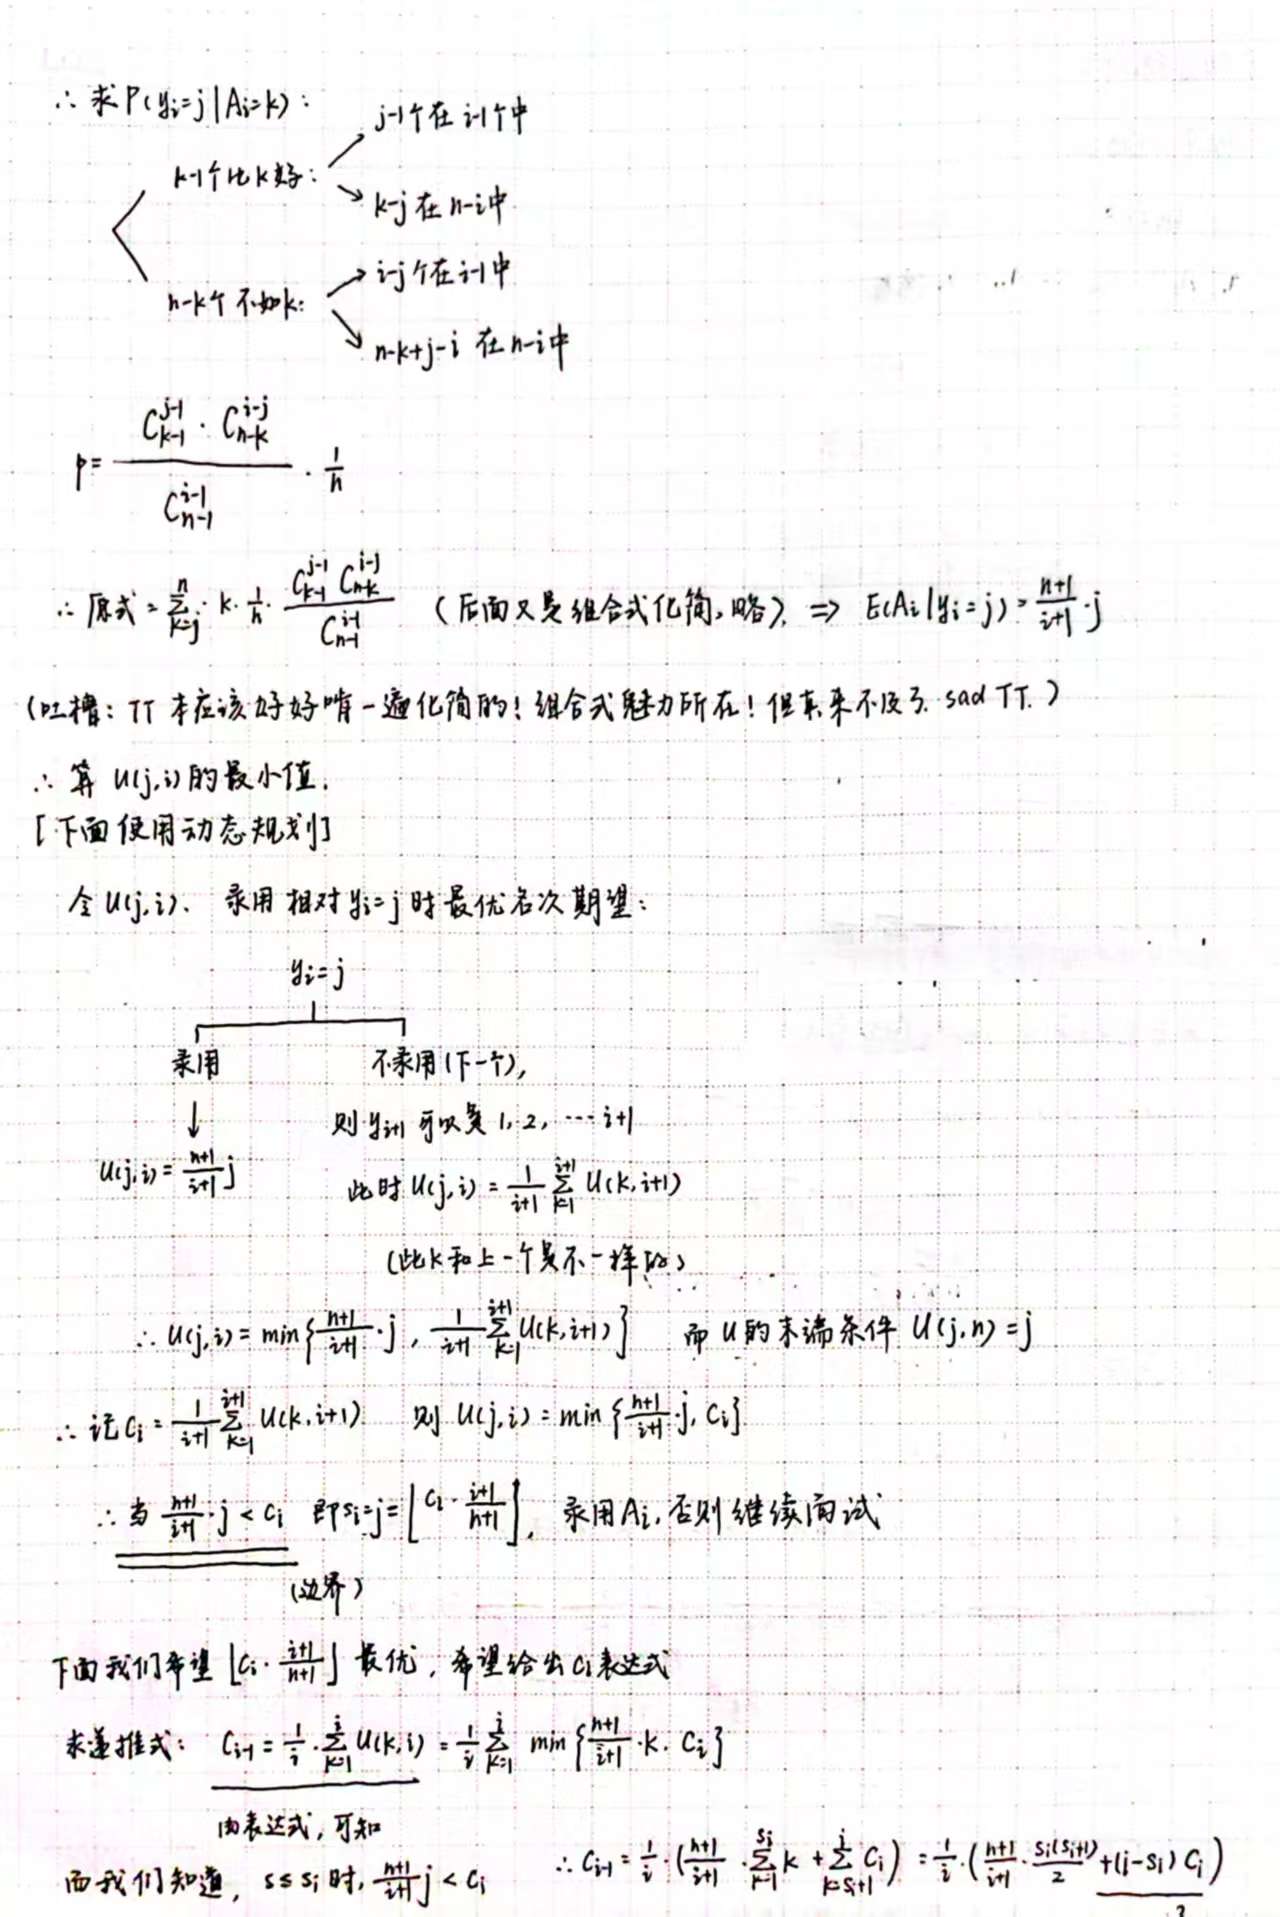 ∴ 求 P(y_i=j|A_i=k):
j-1个在 i-1个中
k-1个比k好:
k-j 在 n-i中
i-j个在i-1中
n-k个 不如k:
n-k+j-i 在 n-i中
p = \frac{C_{k-1}^{j-1} · C_{n-k}^{i-j}}{C_{n-1}^{i-1}} · \frac{1}{n}
∴ 原式 = \sum_{k=j}^{n} k · \frac{1}{n} · \frac{C_{k-1}^{j-1} C_{n-k}^{i-j}}{C_{n-1}^{i-1}} (后面又是组合式化简,略). ⇒ E(A_i|y_i=j) = \frac{n+1}{i+1}·j
(吐槽: TT 本应该好好啃一遍化简的! 组合式魅力所在! 但真来不及了. sad TT.)
∴ 算 U(j,i)的最小值.
[下面使用动态规划]
令 U(j,i). 录用 相对y_i=j时最优名次期望:
y_i=j
录用 不录用(下一个),
↓ 则 y_{i+1} 可以是 1, 2, ⋯ i+1
U(j,i) = \frac{n+1}{i+1} j 此时 U(j,i) = \frac{1}{i+1} \sum_{k=1}^{i+1} U(k,i+1)
(此k和上一个是不一样的)
∴ U(j,i) = min{\frac{n+1}{i+1}·j , \frac{1}{i+1} \sum_{k=1}^{i+1} U(k,i+1)} 而 U的末端条件 U(j,n)=j
∴ 记 C_i = \frac{1}{i+1} \sum_{k=1}^{i+1} U(k,i+1) 则 U(j,i) = min{\frac{n+1}{i+1}·j, C_i}
∴ 当 \frac{n+1}{i+1}·j < C_i 即 s_i=j=⌊C_i·\frac{i+1}{n+1}⌋, 录用A_i, 否则继续面试
(边界)
下面我们希望 ⌊C_i·\frac{i+1}{n+1}⌋ 最优, 希望给出C_i表达式
求递推式: C_{i-1} = \frac{1}{i}·\sum_{k=1}^{i} U(k,i) = \frac{1}{i} \sum_{k=1}^{i} min{\frac{n+1}{i+1}·k. C_i}
由表达式, 可知
而我们知道, s≤s_i时, \frac{n+1}{i+1} j < C_i ∴ C_{i-1} = \frac{1}{i}·(\frac{n+1}{i+1}·\sum_{k=1}^{s_i} k + \sum_{k=s_i+1}^{i} C_i) = \frac{1}{i}·(\frac{n+1}{i+1}·\frac{s_i(s_i+1)}{2} + (i-s_i) C_i)